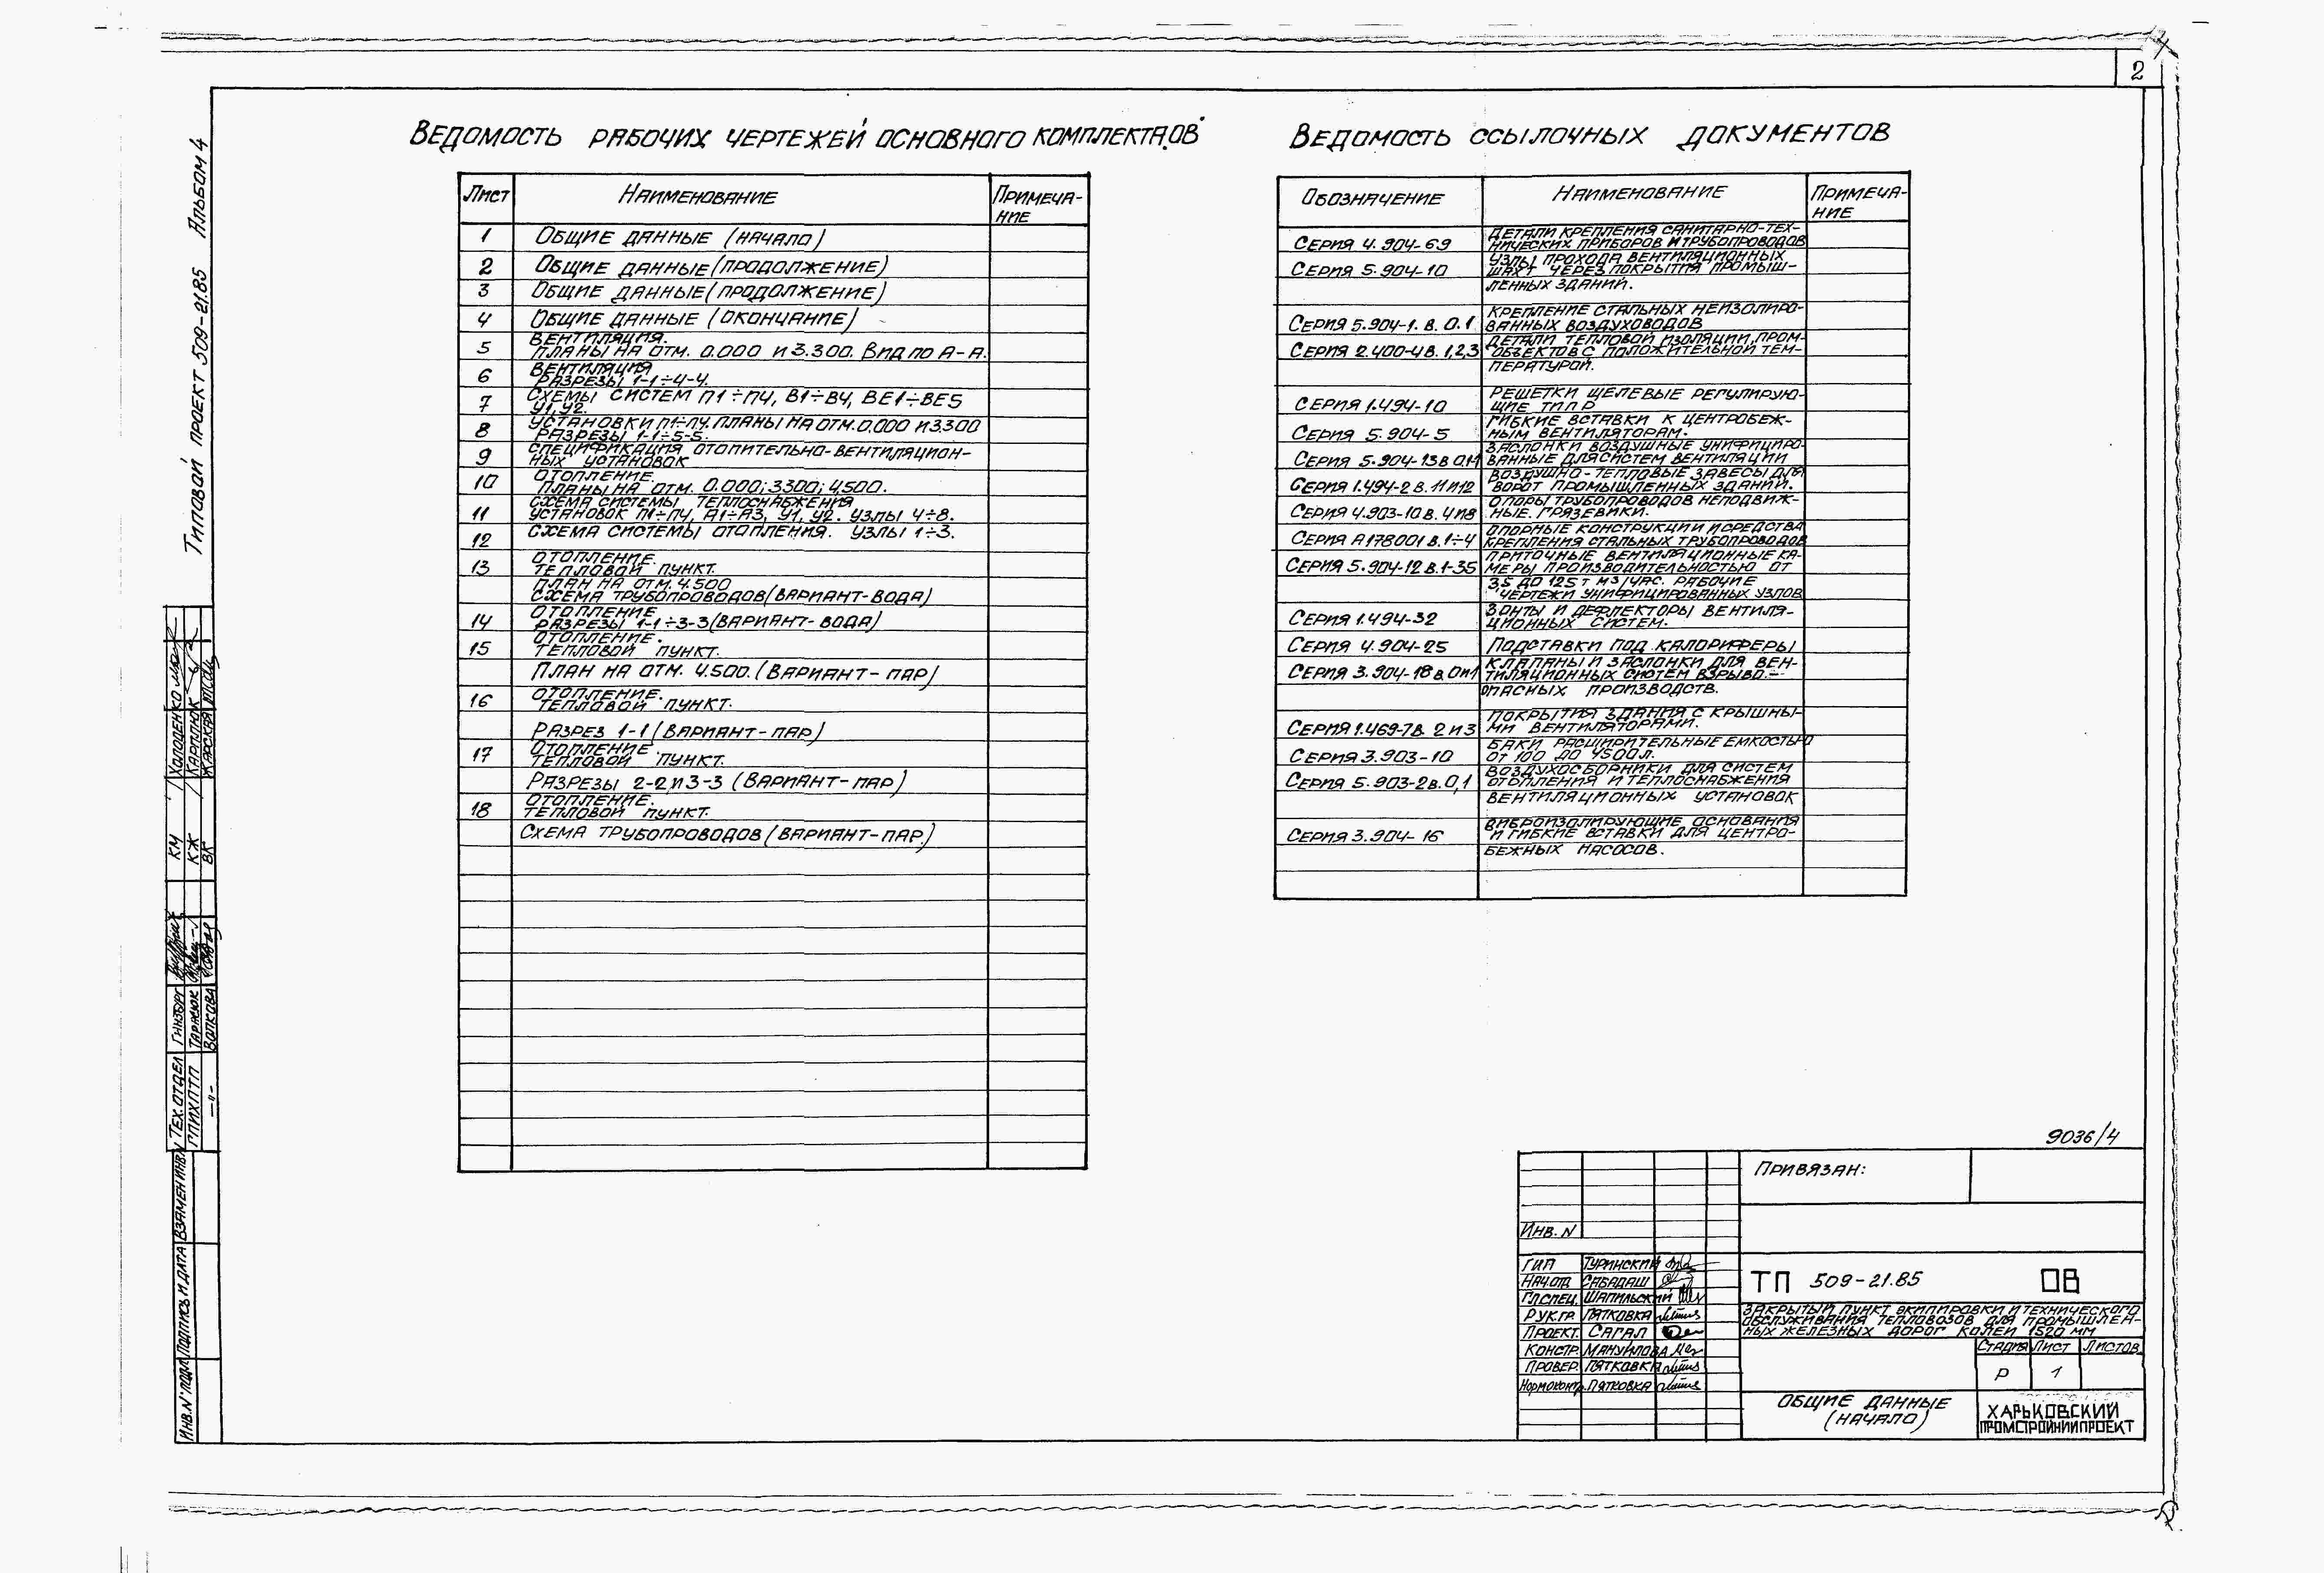 2
Типовой проект 509-21.85 Альбом 4
Ведомость рабочих чертежей основного комплекта "ОВ"
Лист Наименование Примеча-
ние
1 Общие данные (начало)
2 Общие данные (продолжение)
3 Общие данные (продолжение)
4 Общие данные (окончание)
Вентиляция.
5 Планы на отм. 0.000 и 3.300. Вид по А-А.
Вентиляция
6 Разрезы 1-1÷4-4.
Схемы систем П1÷П4, В1÷В4, ВЕ1÷ВЕ5
7 У1, У2.
Установки П1÷П4. Планы на отм. 0.000 и 3.300
8 Разрезы 1-1÷5-5.
Спецификация отопительно-вентиляцион-
9 ных установок
Отопление.
10 Планы на отм. 0.000; 3.300; 4.500.
Схема системы теплоснабжения
11 установок П1÷П4, А1÷А3, У1, У2. Узлы 4÷8.
12 Схема системы отопления. Узлы 1÷3.
Отопление.
13 Тепловой пункт.
План на отм. 4.500
Схема трубопроводов (вариант-вода)
Отопление.
14 Разрезы 1-1÷3-3 (вариант-вода)
Отопление.
15 Тепловой пункт.
План на отм. 4.500. (вариант-пар)
Отопление.
16 Тепловой пункт.
Разрез 1-1 (вариант-пар)
Отопление.
17 Тепловой пункт.
Разрезы 2-2 и 3-3 (вариант-пар)
Отопление.
18 Тепловой пункт.
Схема трубопроводов (вариант-пар.)
Ведомость ссылочных документов
Обозначение Наименование Примеча-
ние
Детали крепления санитарно-тех-
Серия 4.904-69 нических приборов и трубопроводов
Узлы прохода вентиляционных
Серия 5.904-10 шахт через покрытия промыш-
ленных зданий.
Крепление стальных неизолиро-
Серия 5.904-1. в. 0.1 ванных воздуховодов
Детали тепловой изоляции, пром-
Серия 2.400-4 в. 1,2,3 объектов с положительной тем-
пературой.
Решетки щелевые регулирую-
Серия 1.494-10 щие тип Р
Гибкие вставки к центробеж-
Серия 5.904-5 ным вентиляторам.
Заслонки воздушные унифициро-
Серия 5.904-13 в 0.1-1 ванные для систем вентиляции
Воздушно-тепловые завесы для
Серия 1.494-2 в. 11 и 12 ворот промышленных зданий.
Опоры трубопроводов неподвиж-
Серия 4.903-10 в. 4 и 8 ные. Грязевики.
Опорные конструкции и средства
Серия А178001 в. 1÷4 крепления стальных трубопроводов
Приточные вентиляционные ка-
Серия 5.904-12 в. 1-35 меры производительностью от
3.5 до 125 т м3/час. Рабочие
чертежи унифицированных узлов
Зонты и дефлекторы вентиля-
Серия 1.494-32 ционных систем.
Серия 4.904-25 Подставки под калориферы
Клапаны и заслонки для вен-
Серия 3.904-18 в 0 и 1 тиляционных систем взрыво-
опасных производств.
Покрытия здания с крышны-
Серия 1.469-7 в. 2 и 3 ми вентиляторами.
Баки расширительные емкостью
Серия 3.903-10 от 100 до 4500 л.
Воздухосборники для систем
Серия 5.903-2 в. 0,1 отопления и теплоснабжения
вентиляционных установок
Виброизолирующие основания
Серия 3.904-16 и гибкие вставки для центро-
бежных насосов.
КМ Холоденко
КЖ Карплюк
ВК Жарская
Тех. отдел Гинзбрг
ГПИХПТП Таранюк
—"— Волкова
Взамен инв. №
Подпись и дата
Инв. № подл
9036/4
Привязан:
Инв. N
ГИП Туринский
Нач.отд Сабадаш
Гл.спец. Шапильский
Рук.гр. Пятковка
Проект. Сагал
Констр. Мануйлова
Провер. Пятковка
Нормоконтр. Пятковка
ТП 509-21.85 ОВ
Закрытый пункт экипировки и технического
обслуживания тепловозов для промышлен-
ных железных дорог колеи 1520 мм
Стадия Лист Листов
Р 1
Общие данные
(начало)
Харьковский
Промстройниипроект